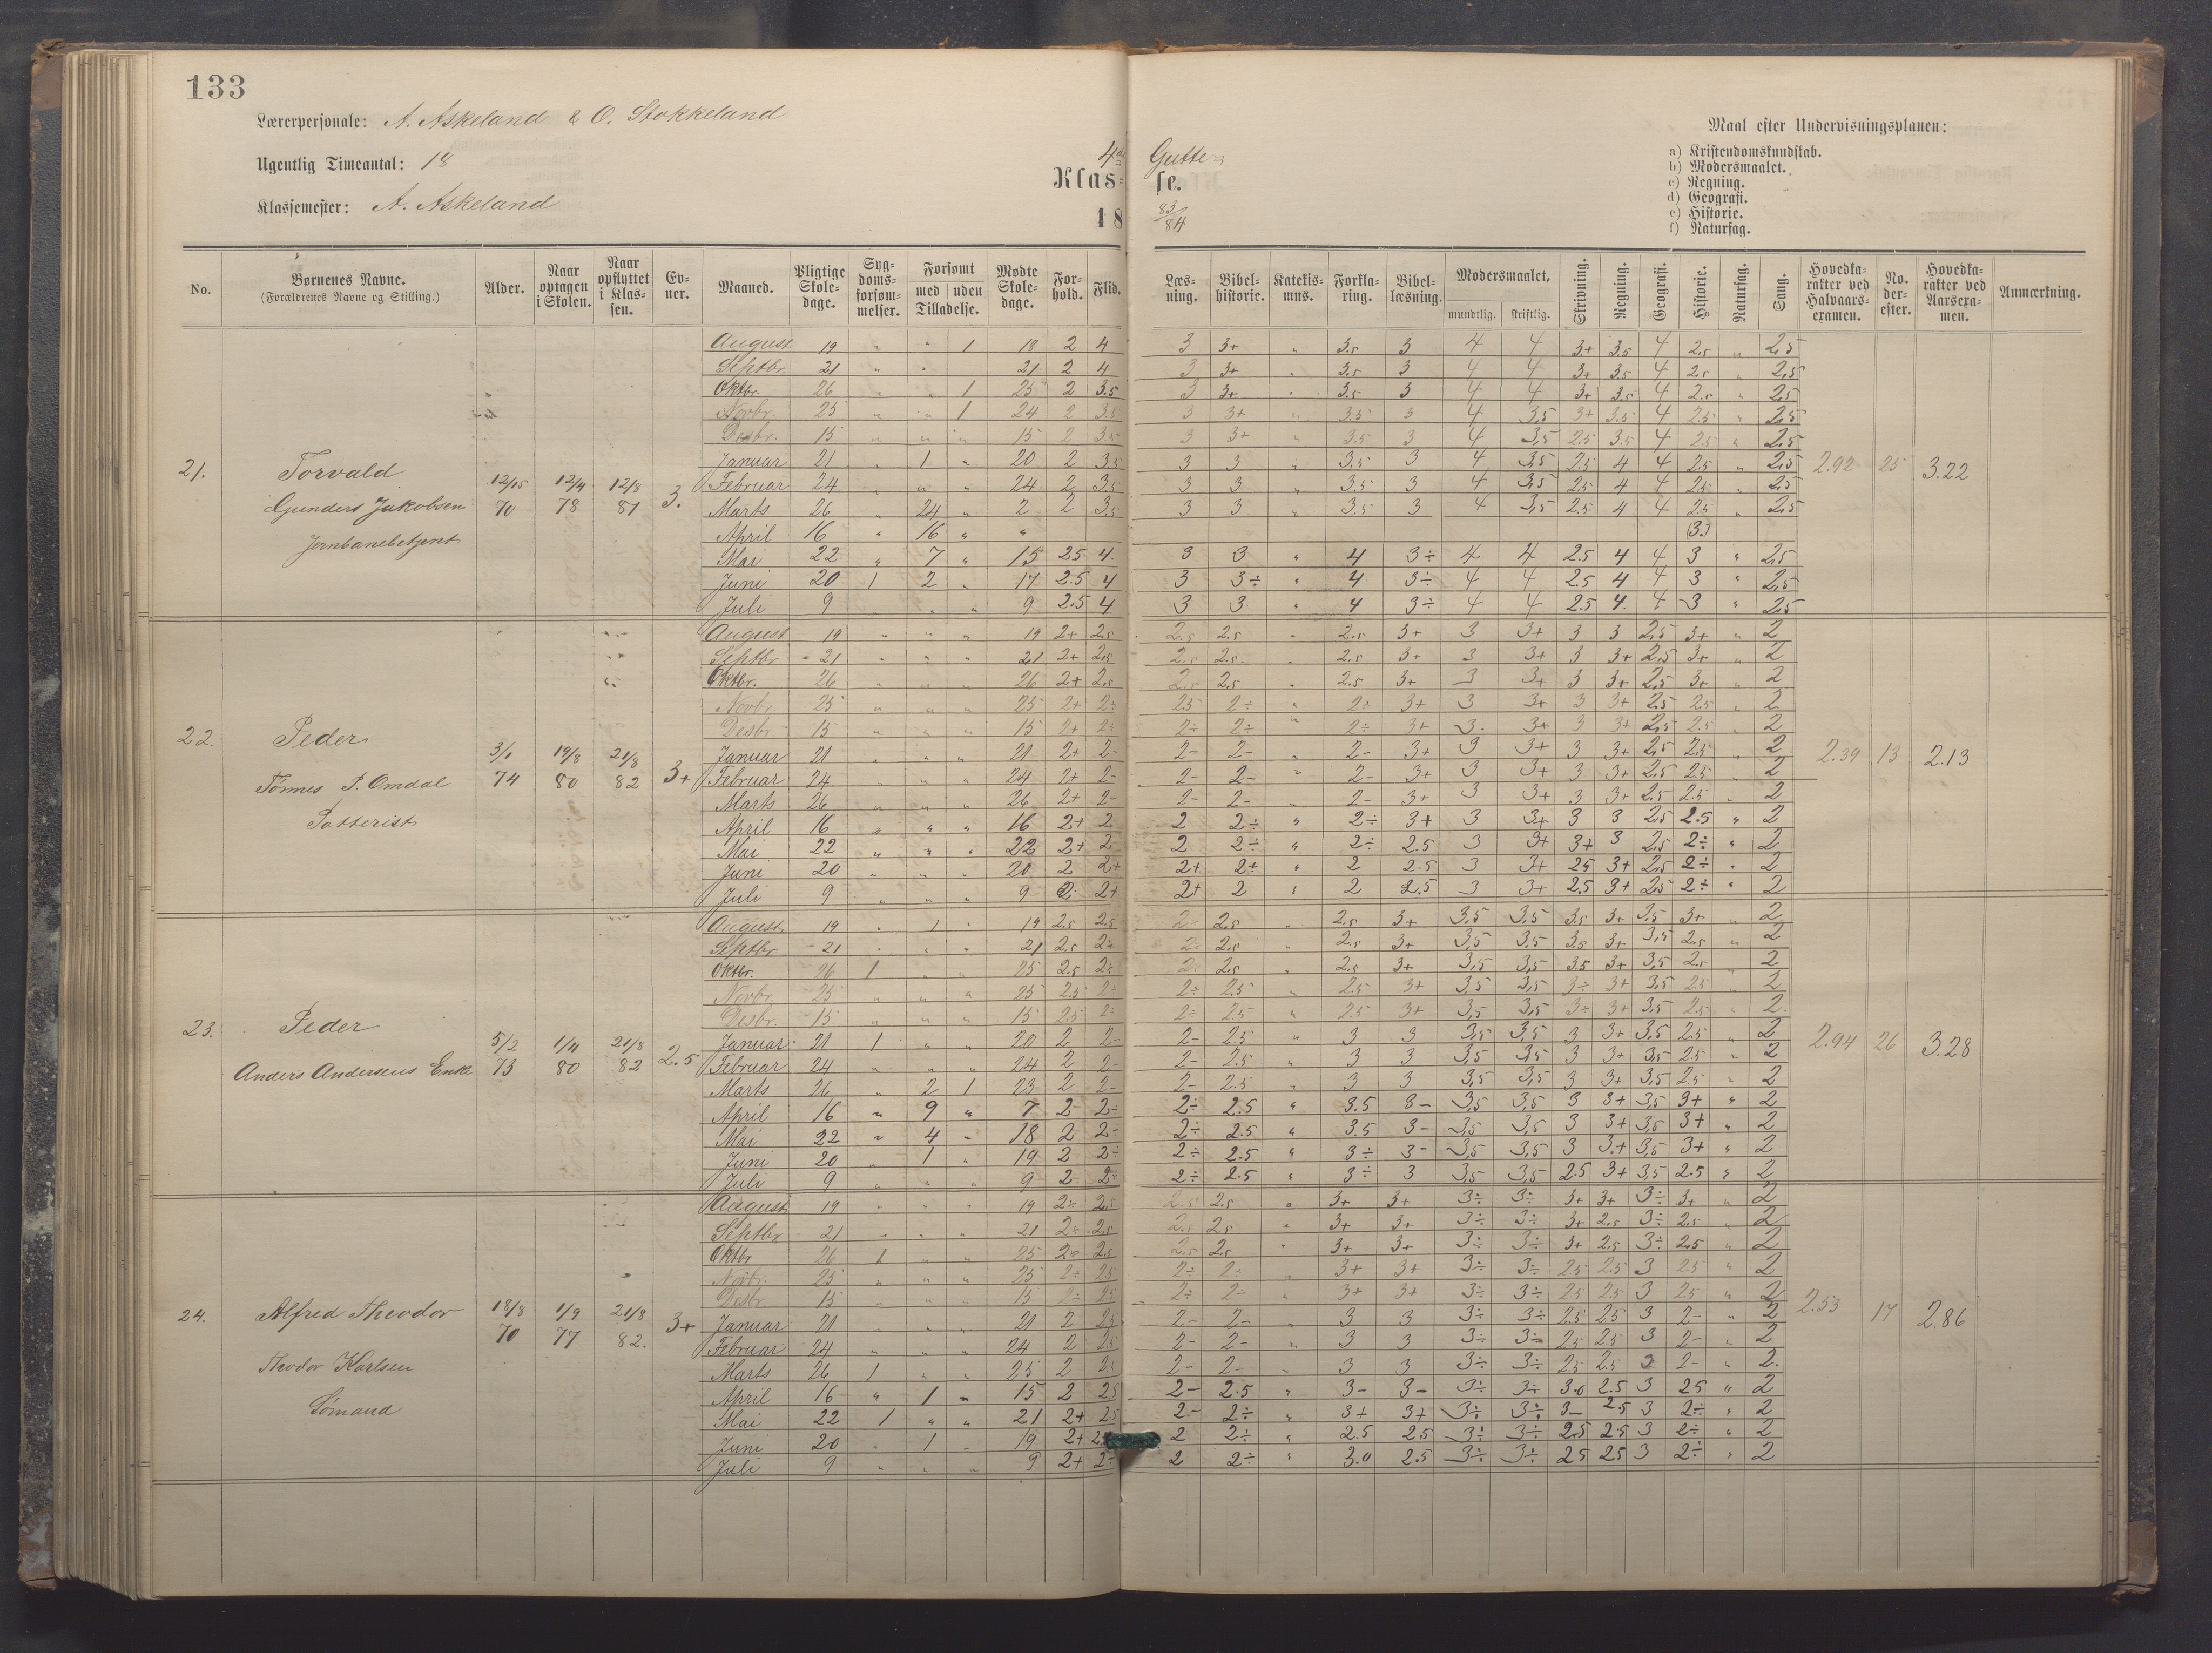 133
Lærerpersonale: A. Askeland & O. Stokkeland
Ugentlig Timeantal: 18
Klassemester: A. Askeland
4de Gutte=
Klas= se.
18 83/84
Maal efter Undervisningsplanen:
a) Kristendomskundskab.
b) Modersmaalet.
c) Regning.
d) Geografi.
e) Historie.
f) Naturfag.
No. Børnenes Navne. (Forældrenes Navne og Stilling.) Alder. Naar optagen i Skolen. Naar opflyttet i Klas=sen. Ev=ner. Maaned. Pligtige Skole=dage. Syg=doms=forsøm=melser. Forsømt med uden Tilladelse. Mødte Skole=dage. For=hold. Flid. Læs=ning. Bibel=historie. Katekis=mus. Forkla=ring. Bibel=læsning. Modersmaalet, mundtlig. skriftlig. Skrivning. Regning. Geografi. Historie. Naturfag. Sang. Hovedka=rakter ved Halvaars=examen. No. der=efter. Hovedka=rakter ved Aarsexa=men. Anmærkning.
August 19 " " 1 18 2 4 3 3+ " 3.5 3 4 4 3+ 3.5 4 2.5 " 2,5
Septbr. 21 " " 21 2 4 3 3+ " 3.5 3 4 4 3+ 3.5 4 2.5 " 2,5
Oktbr. 26 " " 1 25 2 3.5 3 3+ " 3.5 3 4 4 3+ 3.5 4 2.5 " 2,5
Novbr. 25 " " 1 24 2 3.5 3 3+ " 3.5 3 4 3,5 3+ 3.5 4 2.5 " 2,5
Desbr. 15 " " " 15 2 3.5 3 3+ " 3.5 3 4 3,5 2.5 3.5 4 2.5 " 2,5
Januar 21 " 1 " 20 2 3.5 3 3 " 3.5 3 4 3,5 2.5 4 4 2.5 " 2,5
21. Torvald 12/15 70 12/4 78 12/8 81 3. 2.92 25 3.22
Februar 24 " " " 24 2 3.5 3 3 " 3.5 3 4 3,5 2.5 4 4 2.5 " 2,5
Gunders Jakobsen
Marts 26 " 24 " 2 2 3.5 3 3 " 3.5 3 4 3,5 2.5 4 4 2.5 " 2,5
Jernbanebetjent
April 16 " 16 " " (3.)
Mai 22 " 7 " 15 2.5 4. 3 3 " 4 3÷ 4 4 2.5 4 4 3 " 2,5
Juni 20 1 2 " 17 2.5 4 3 3÷ " 4 3÷ 4 4 2.5 4 4 3 " 2,5
Juli 9 " " " 9 2.5 4 3 3 " 4 3÷ 4 4 2.5 4. 4 3 " 2,5
August 19 " " " 19 2+ 2.5 2.5 2.5 " 2.5 3+ 3 3+ 3 3 2,5 3+ " 2
Septbr 21 " " " 21 2+ 2.5 2.5 2.5 " 2.5 3+ 3 3+ 3 3+ 2,5 3+ " 2
Oktbr. 26 " " " 26 2+ 2.5 2.5 2.5 " 2.5 3+ 3 3+ 3 3+ 2,5 3+ " 2
Novbr. 25 " " " 25 2+ 2÷ 2.5 2÷ " 2÷ 3+ 3 3+ 3 3+ 2,5 2.5 " 2
Desbr. 15 " " " 15 2+ 2÷ 2÷ 2÷ " 2÷ 3+ 3. 3+ 3 3+ 2,5 2.5 " 2
22. Peder 3/1 74 19/8 80 21/8 82 3+ 2.39 13 2.13
Januar 21 " " " 21 2+ 2- 2- 2- " 2- 3+ 3 3+ 3 3+ 2,5 2.5 " 2
Tønnes T. Omdal
Februar 24 " " " 24 2+ 2- 2- 2- " 2- 3+ 3 3+ 3 3+ 2,5 2.5 " 2
Marts 26 " " " 26 2+ 2- 2- 2- " 2- 3+ 3 3+ 3 3+ 2,5 2.5 " 2
April 16 " " " 16 2+ 2 2 2÷ " 2÷ 3+ 3 3+ 3 3 2,5 2.5 " 2
Mai 22 " " " 22 2+ 2 2 2÷ " 2÷ 2.5 3 3+ 3+ 3 2,5 2÷ " 2
Juni 20 " " " 20 2 2+ 2+ 2+ " 2 2.5 3 3+ 25 3+ 2,5 2÷ " 2
Juli 9 " " " 9 2 2+ 2+ 2 " 2 2.5 3 3+ 2.5 3+ 2,5 2÷ " 2
August 19 " 1 " 19 2.5 2.5 2 2.5 " 2.5 3+ 3,5 3,5 3.5 3+ 3,5 3+ " 2
Septbr 21 " " " 21 2.5 2÷ 2÷ 2.5 " 2.5 3+ 3,5 3,5 3.5 3+ 3,5 2.5 " 2
Oktbr. 26 1 " " 25 2.5 2÷ 2÷ 2.5 " 2.5 3+ 3,5 3,5 3.5 3+ 3,5 2.5 " 2
Novbr. 25 " " " 25 2.5 2÷ 2÷ 2.5 " 2.5 3+ 3,5 3,5 3÷ 3+ 3,5 2.5 " 2
Desbr. 15 " " " 15 2.5 2÷ 2÷ 2.5 " 2.5 3+ 3,5 3,5 3÷ 3+ 3,5 2.5 " 2.
23. Peder 5/2 73 1/4 80 21/8 82 2.5 2.94 26 3.28
Januar 21 1 " " 20 2 2- 2- 2.5 " 3 3 3,5 3,5 3 3+ 3,5 2.5 " 2
Anders Andersens Enke
Februar 24 " " " 24 2 2- 2- 2.5 " 3 3 3,5 3,5 3 3+ 3,5 2.5 " 2
Marts 26 " 2 1 23 2 2- 2- 2.5 " 3 3 3,5 3,5 3 3+ 3,5 2.5 " 2
April 16 " 9 " 7 2 2÷ 2÷ 2.5 " 3.5 3- 3,5 3,5 3 3+ 3,5 3+ " 2
Mai 22 " 4 " 18 2 2÷ 2÷ 2.5 " 3.5 3- 3,5 3,5 3 3+ 3,5 3+ " 2
Juni 20 " 1 " 19 2 2÷ 2÷ 2.5 " 3÷ 3- 3,5 3,5 3 3+ 3,5 3+ " 2
Juli 9 " " " 9 2 2÷ 2÷ 2.5 " 3÷ 3 3,5 3,5 2.5 3+ 3,5 2.5 " 2
August 19 " " " 19 2÷ 2.5 2.5 2.5 " 3+ 3+ 3÷ 3÷ 3+ 3+ 3÷ 3+ " 2
Septbr 21 " " " 21 2÷ 2.5 2.5 2.5 " 3+ 3+ 3÷ 3÷ 3+ 2.5 3÷ 2.5 " 2
Oktbr 26 1 " " 25 2÷ 2.5 2.5 2.5 " 3+ 3+ 3÷ 3÷ 3+ 2.5 3÷ 2.5 " 2
Novbr. 25 " " " 25 2÷ 2.5 2÷ 2÷ " 3+ 3+ 3÷ 3÷ 2.5 2.5 3 2.5 " 2
Desbr. 15 " " " 15 2÷ 2.5 2÷ 2÷ " 3+ 3+ 3÷ 3÷ 2.5 2.5 3 2.5 " 2
24. Alfred Theodor 18/8 70 1/9 77 21/8 82. 3+ 2.53 17 2.86
Januar 21 " " " 21 2 2.5 2- 2- " 3 3 3÷ 3÷ 2.5 2.5 3 2- " 2
Februar 24 " " " 24 2 2.5 2- 2- " 3 3 3÷ 3÷ 2.5 2.5 3 2- " 2
Theodor Karlsen
Marts 26 1 " " 25 2 2.5 2- 2- " 3 3 3÷ 3÷ 2.5 2.5 3 2- " 2.
April 16 " 1 " 15 2 2.5 2- 2.5 " 3- 3- 3÷ 3÷ 3.0 2.5 3 25 " 2
Sømand
Mai 22 1 " " 21 2+ 2.5 2- 2÷ " 3+ 3+ 3÷ 3÷ 3- 2.5 3 2÷ " 2
Juni 20 " 1 " 19 2+ 2 2÷ " 2.5 2.5 3÷ 3÷ 2.5 2.5 3 2÷ " 2
Juli 9 " " " 9 2+ 2÷ 2 2÷ " 3.0 2.5 3÷ 3÷ 25 25 3 2÷ " 2